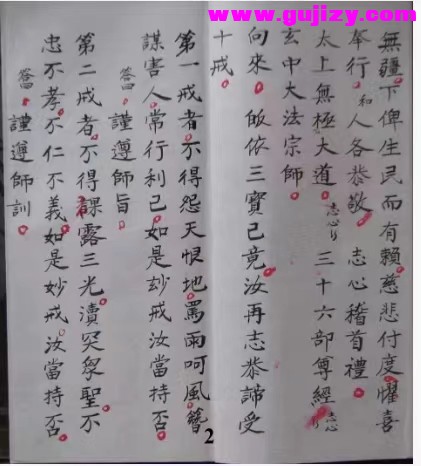 www.gujizy.com
無疆下俾生民而有賴慈悲付度懽喜
奉行和人各恭敬 志心稽首禮
太上無極大道志心 三十六部尊經志心
玄中大法宗師
向來皈依三寶已竟汝再志恭諦受
十戒
第一戒者不得怨天恨地罵雨呵風簪
謀害人常行利己如是玅戒汝當持否
答曰謹遵師旨
第二戒者不得課露三光瀆哭眾聖不
忠不孝不仁不義如是妙戒汝當持否
答曰謹遵師訓
2